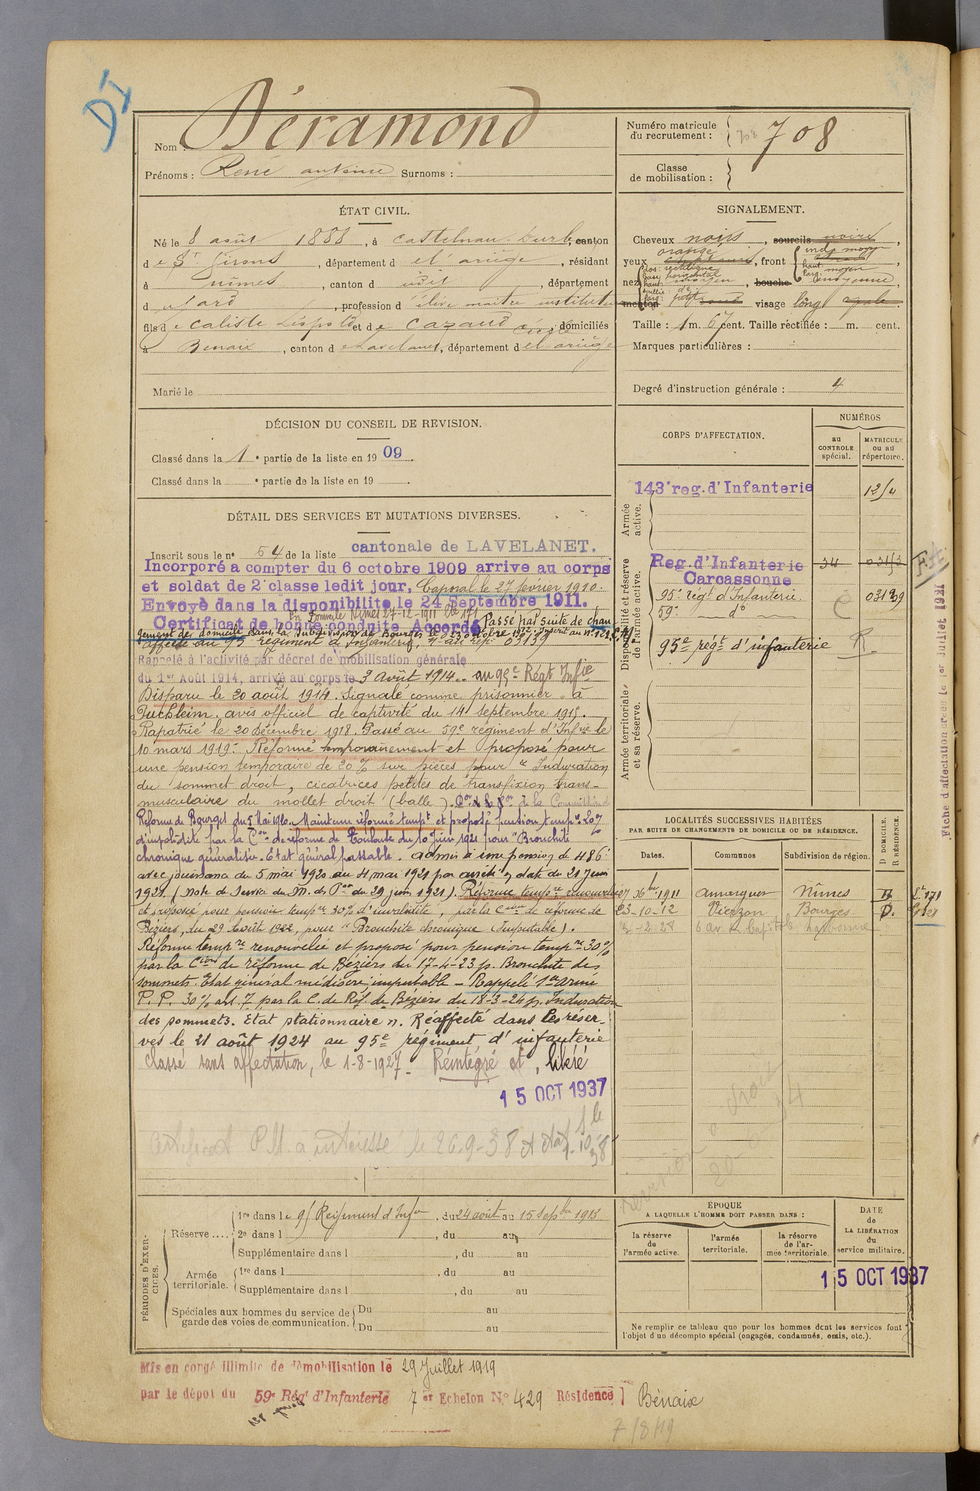 DI
Nom : Déramond
Prénoms : René antoine Surnoms :
Numéro matricule du recrutement : 708
Classe de mobilisation :
ÉTAT CIVIL.
Né le 8 août 1888, à Castelnau-Durb, canton
de St Girons, département de l'ariège, résidant
à nimes, canton d udit, département
d u Gard, profession d'élève maître institut
fils de Caliste Léopold et de Cazaud, domiciliés
à Benaix, canton de Lavelanet, département de l'ariège
Marié le
SIGNALEMENT.
Cheveux noirs, sourcils noirs,
yeux orangé, front
inc. moyen
haut.
larg. moyen
nez
dos rectiligne
base horizontal
haut. moyen, bouche moyenne,
menton visage long
Taille : 1 m. 67 cent. Taille rectifiée : m. cent.
Marques particulières :
Degré d'instruction générale : 4
DÉCISION DU CONSEIL DE REVISION.
Classé dans la 1e partie de la liste en 1909.
Classé dans la e partie de la liste en 19 .
CORPS D'AFFECTATION.
NUMÉROS
AU CONTROLE spécial.
MATRICULE OU AU répertoire.
Armée active.
143e reg. d'Infanterie
Disponibilité et réserve de l'armée active.
Reg. d'Infanterie Carcassonne 34
95e régt d'Infanterie 03139
59e do
95e régt d'infanterie R.
Armée territoriale et sa réserve.
DÉTAIL DES SERVICES ET MUTATIONS DIVERSES.
Inscrit sous le n° 54 de la liste cantonale de LAVELANET.
Incorporé a compter du 6 octobre 1909 arrive au corps
et soldat de 2e classe ledit jour, Caporal le 27 février 1910.
Envoyé dans la disponibilité le 24 Septembre 1911.
Certificat de bonne conduite Accordé. Passé par suite de chan
gement de domicile dans la subdivision de Bourges le 23 octobre 1912
affecté au 95e régiment d'Infanterie, n° au rép. 03139
Rappelé à l'activité par décret de mobilisation générale
du 1er Août 1914, arrivé au corps le 3 Août 1914. au 95e Régt Infie
Disparu le 20 août 1914. Signalé comme prisonnier à
Puchheim, avis officiel de captivité du 14 septembre 1915.
Rapatrié le 20 décembre 1918. Passé au 59e régiment d'Infrie le
10 mars 1919. Réformé temporairement et proposé pour
une pension temporaire de 20 % sur pièces pour "Induration
du sommet droit, cicatrices petites de transfixion trans-
musculaire du mollet droit (balle). Don de la Con de la Commission de
Réforme de Bourges du 5 Mai 1920. Maintenu réformé tempt et proposé pension tempre 20 %
d'invalidité par la Con de réforme de Toulouse du 10 juin 1921 pour "Bronchite
chronique généralisée. Etat général passable. Admis à une pension de 486f
avec jouissance du 5 mai 1920 au 4 mai 1921 par arrêté en date du 21 Juin
1921. (Note de Service du M. des Pons du 29 juin 1921). Réforme tempre renouvelée
et proposé pour pension tempre 30 % d'invalidité, par la Con de réforme de
Béziers, du 29 Août 1922, pour "Bronchite chronique (Imputable).
Réforme tempre renouvelée et proposé pour pension tempre 30 %
par la Con de réforme de Béziers du 17-4-23 p. Bronchite des
sommets. Etat général médiocre, imputable - Rappelé
P. P. 30 % art. 7 par la C. de Réf. de Béziers du 18-3-24 p. Induration
des sommets. Etat stationnaire n. Réaffecté dans les réser-
ves le 21 août 1924 au 95e régiment d'infanterie
Classé sans affectation, le 1-8-1927. Réintégré et, libéré
15 OCT 1937
Certificat P.M. a intéressé le 26-9-38
LOCALITÉS SUCCESSIVES HABITÉES
PAR SUITE DE CHANGEMENTS DE DOMICILE OU DE RÉSIDENCE.
Dates. Communes Subdivision de région. D DOMICILE. R RÉSIDENCE.
27 Xbre 1911 Aimargues Nîmes R
23-10-12 Vierzon Bourges D.
Narbonne
Fiche d'affectation créée le 1er Juillet 1921
PÉRIODES D'EXERCICES.
Réserve ....
1re dans le 95 Régiment d'Infie, du 24 août au 15 Septbre 1913
2e dans l , du au
Supplémentaire dans l , du au
Armée territoriale.
1re dans l , du au
Supplémentaire dans l , du au
Spéciales aux hommes du service de garde des voies de communication.
Du au
Du au
ÉPOQUE
A LAQUELLE L'HOMME DOIT PASSER DANS :
la réserve de l'armée active.
l'armée territoriale.
la réserve de l'armée territoriale.
DATE de LA LIBÉRATION du service militaire.
15 OCT 1937
Ne remplir ce tableau que pour les hommes dont les services font
l'objet d'un décompte spécial (engagés, condamnés, omis, etc.).
Mis en congé illimité de démobilisation le 29 Juillet 1919
par le dépôt du 59e Régt d'Infanterie 7er Echelon No 429 Résidence Bénaix
7/8/19